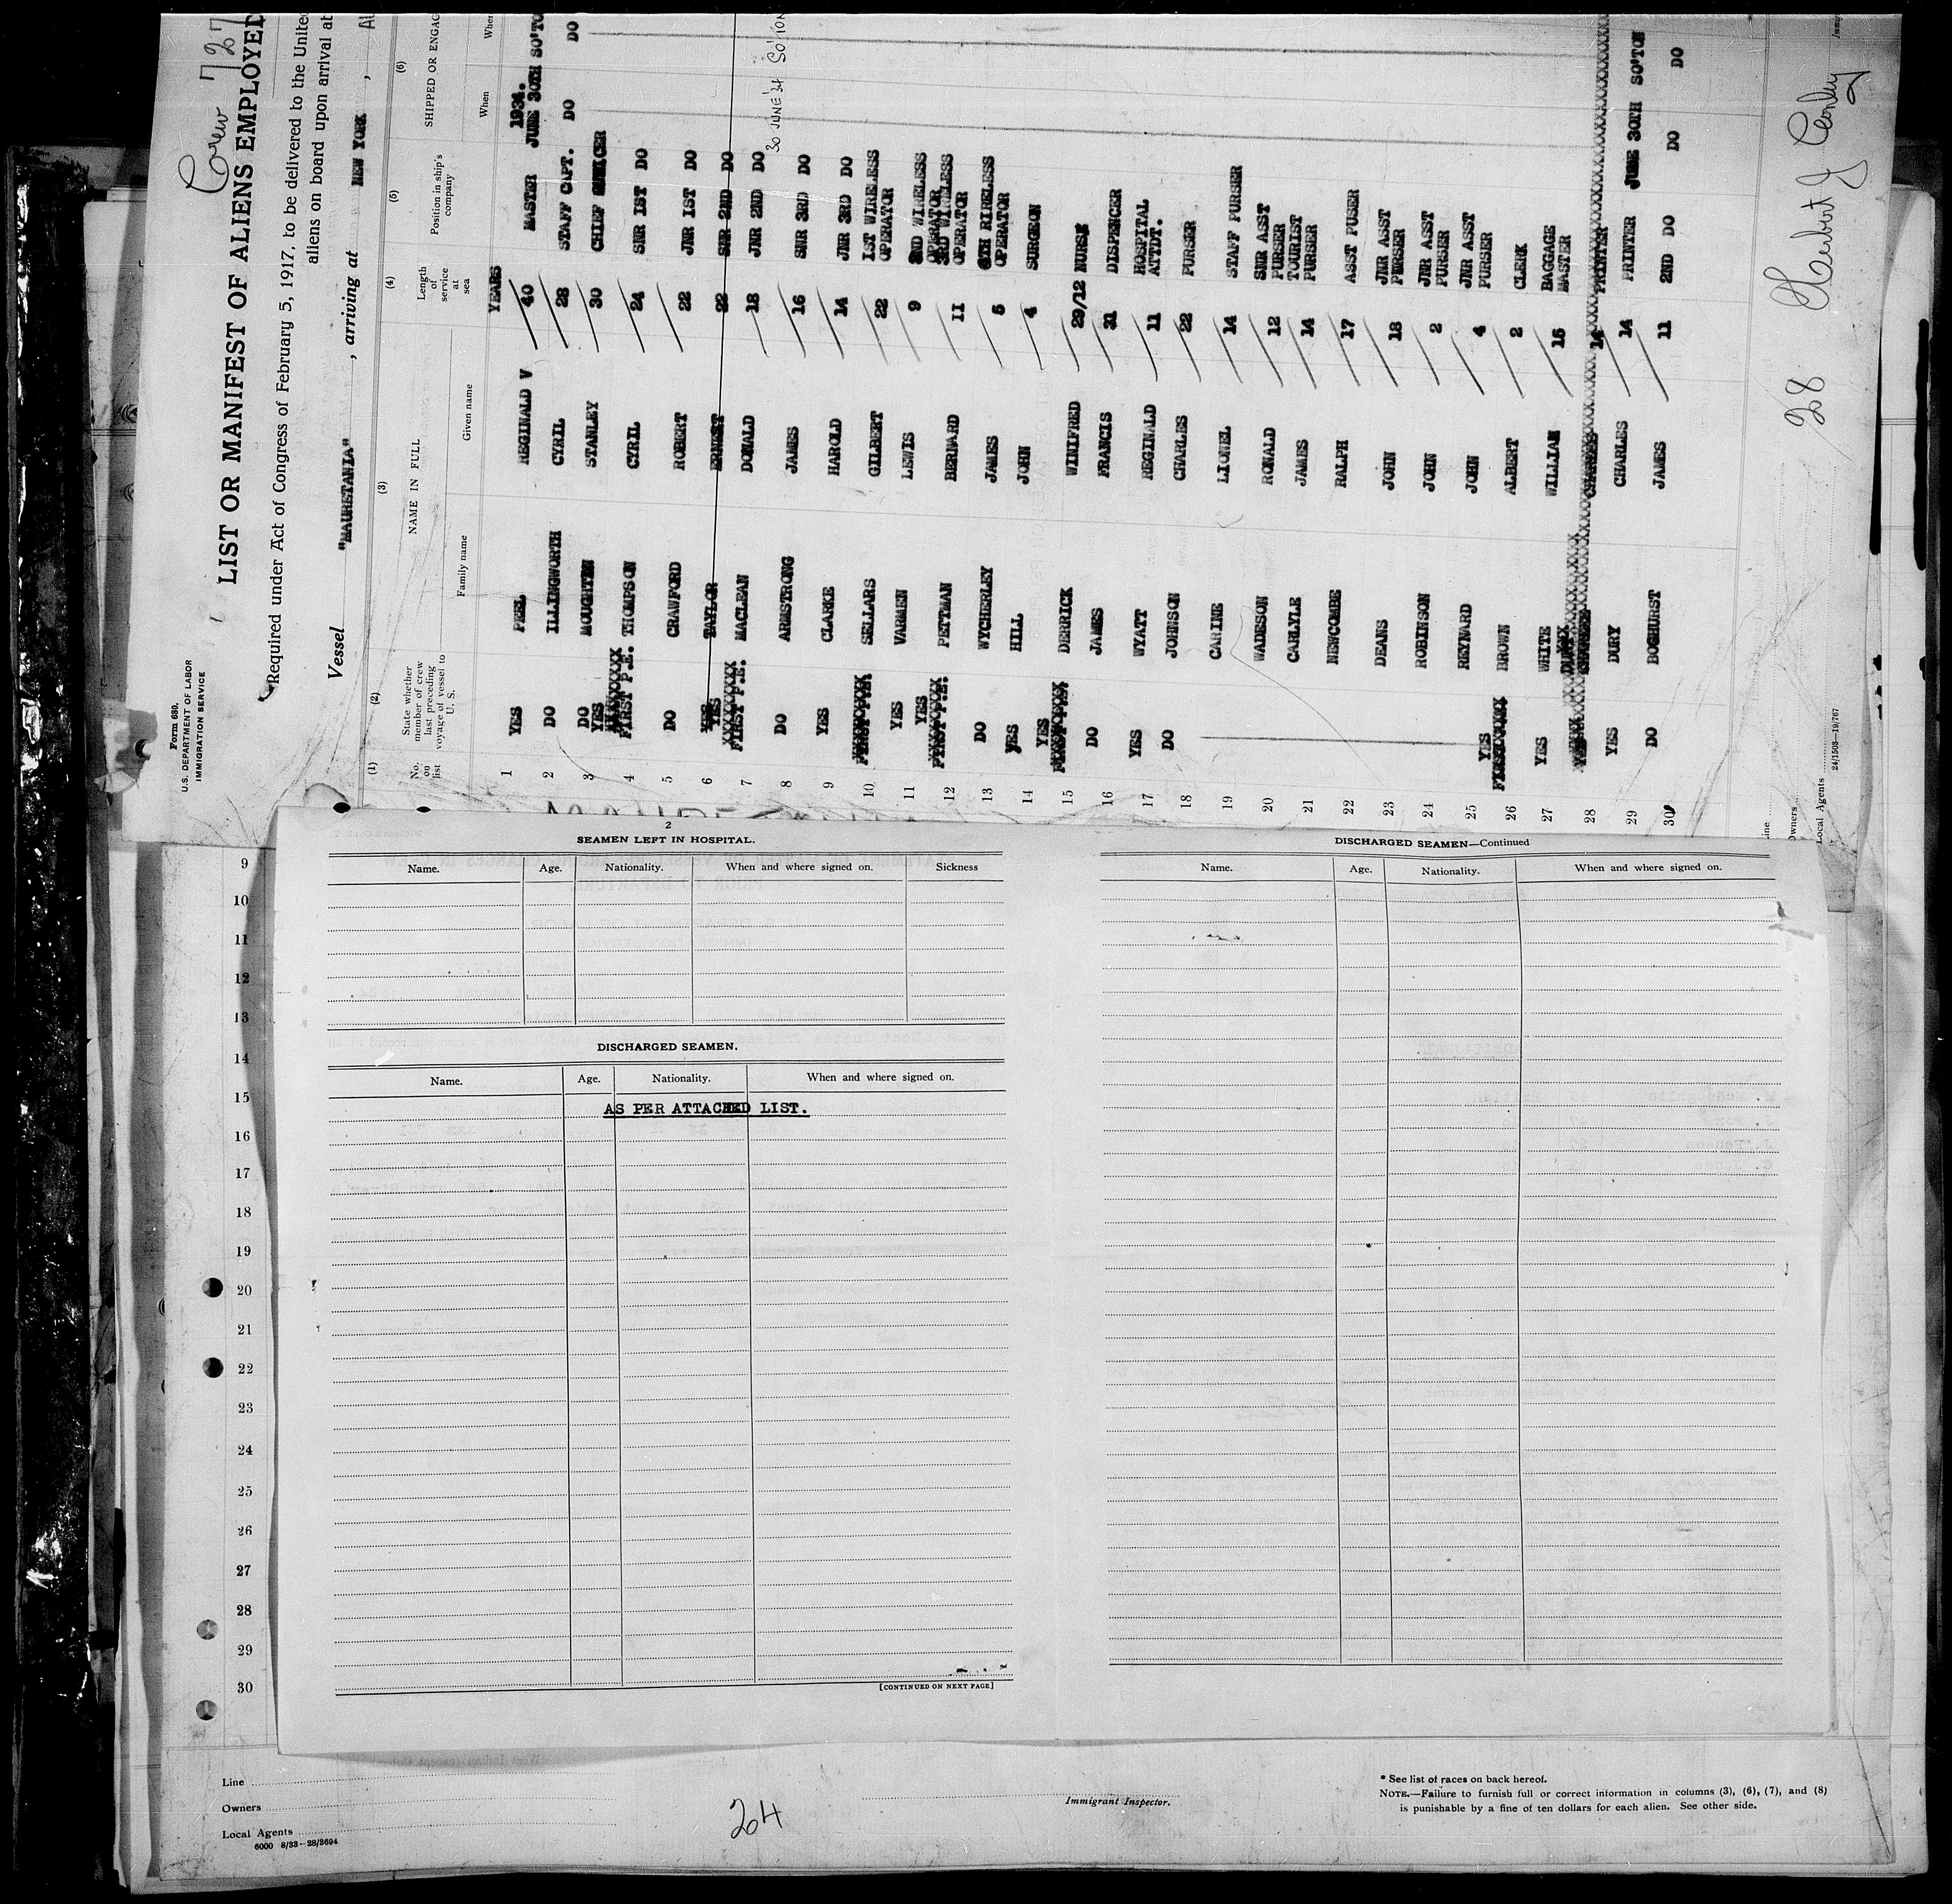 Crew 727
Form 680.
U. S. DEPARTMENT OF LABOR
IMMIGRATION SERVICE
LIST OR MANIFEST OF ALIENS EMPLOYED
Required under Act of Congress of February 5, 1917, to be delivered to the United
aliens on board upon arrival at
Vessel "MAURETANIA", arriving at NEW YORK,
(1) (2) (3) (4) (5) (6)
No. on list
State whether member of crew last preceding voyage of vessel to U. S.
NAME IN FULL
Family name Given name
Length of service at sea
Position in ship's company
SHIPPED OR ENGAG
When Wher
YEARS 1934.
1 YES PEEL REGINALD V 40 MASTER JUNE 30TH SO'TO
2 DO ILLINGWORTH CYRIL 28 STAFF CAPT. DO DO
3 DO MOUGHTEN STANLEY 30 CHIEF
4 YES FIRST P.E. THOMPSON CYRIL 24 SNR 1ST DO
5 DO CRAWFORD ROBERT 22 JNR 1ST DO
6 YES TAYLOR ERNEST 22 SNR 2ND DO
7 YES FIRST P.E. MACLEAN DONALD 18 JNR 2ND DO 30 JUNE '34 SO'TON
8 DO ARMSTRONG JAMES 16 SNR 3RD DO
9 YES CLARKE HAROLD 14 JNR 3RD DO
10 SELLARS GILBERT 22 1ST WIRELESS OPERATOR
11 YES VARMEN LEWIS 9 2ND WIRELESS OPERATOR
12 YES PETTMAN BERNARD 11 3RD WIRELESS OPERATOR
13 DO WYCHERLEY JAMES 5 4TH RIRELESS OPERATOR
14 YES HILL JOHN 4 SURGEON
15 YES DERRICK WINIFRED 29/12 NURSE
16 DO JAMES FRANCIS 31 DISPENCER
17 YES WYATT REGINALD 11 HOSPITAL ATTDT.
18 DO JOHNSON CHARLES 22 PURSER
19 CARINE LIONEL 14 STAFF PURSER
20 WADESON RONALD 12 SNR ASST PURSER
21 CARLYLE JAMES 14 TOURIST PURSER
22 NEWCOMBE RALPH 17 ASST PUSER
23 DEANS JOHN 18 JNR ASST PURSER
24 ROBINSON JOHN 2 JNR ASST PURSER
25 REYNARD JOHN 4 JNR ASST PURSER
26 YES BROWN ALBERT 2 CLERK
27 YES WHITE WILLIAM 15 BAGGAGE MASTER
28 CHARLES 14 PRINTER
29 YES DURY CHARLES 14 PRINTER JUNE 30TH SO'TON
30 DO BOGHURST JAMES 11 2ND DO DO DO
Line
Owners
Local Agents
24/1503—19/767
28 Herbert J
2
SEAMEN LEFT IN HOSPITAL.
Name. Age. Nationality. When and where signed on. Sickness
DISCHARGED SEAMEN.
Name. Age. Nationality. When and where signed on.
AS PER ATTACHED LIST.
[CONTINUED ON NEXT PAGE]
DISCHARGED SEAMEN—Continued
Name. Age. Nationality. When and where signed on.
9
10
11
12
13
14
15
16
17
18
19
20
21
22
23
24
25
26
27
28
29
30
Line
Owners
Local Agents
6000 8/33—28/3694
264
Immigrant Inspector.
* See list of races on back hereof.
NOTE.—Failure to furnish full or correct information in columns (3), (6), (7), and (8)
is punishable by a fine of ten dollars for each alien. See other side.